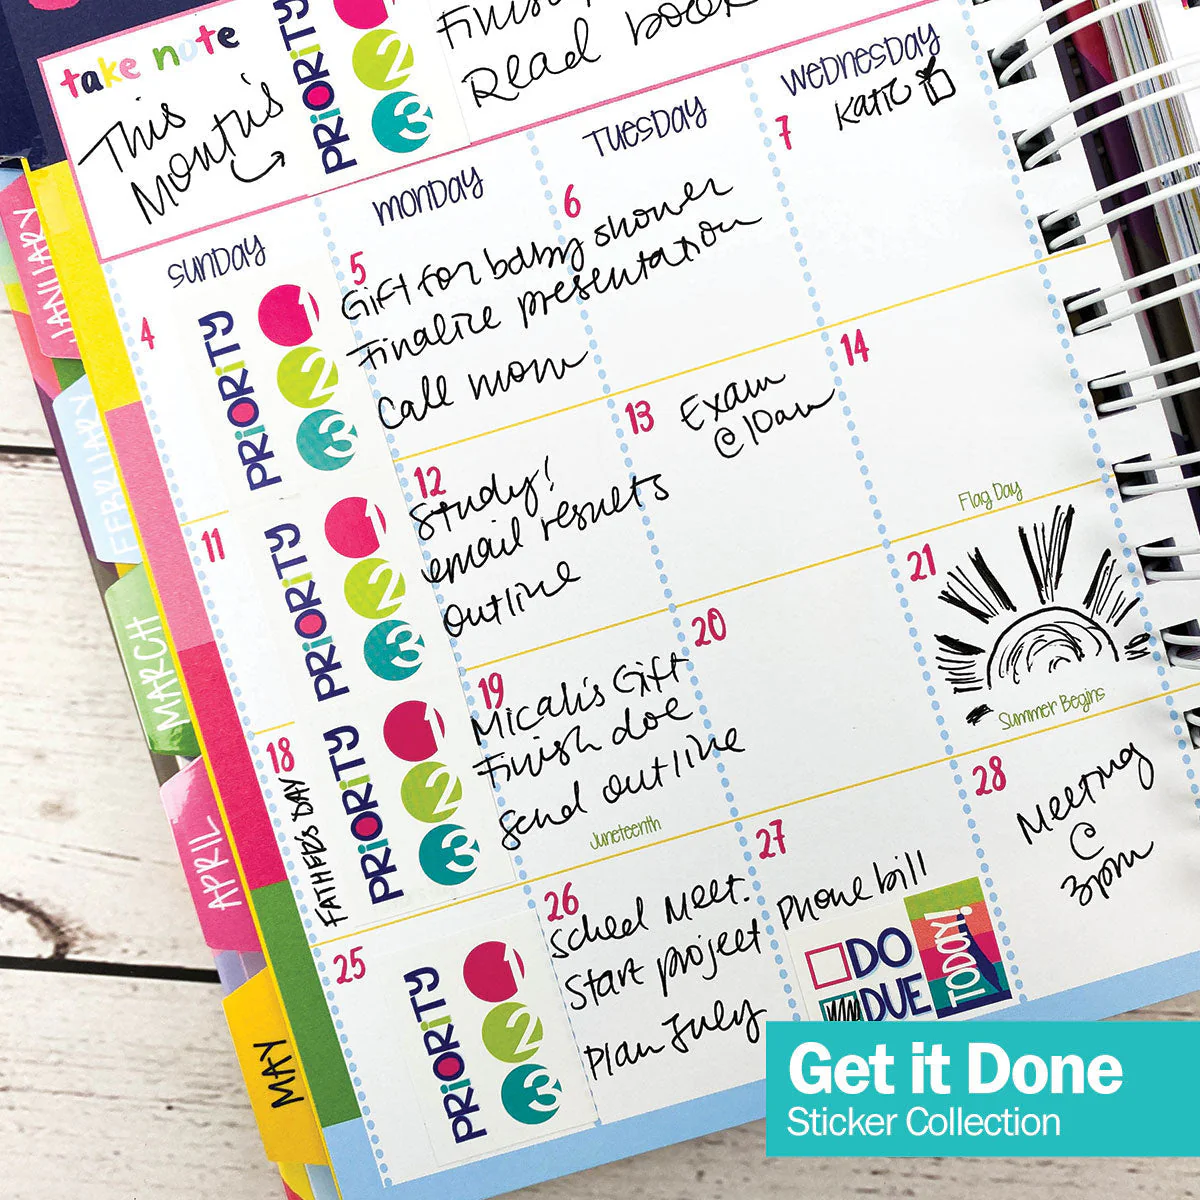 take note
This
Month's
PRiORiTY
1
2
3
Finish
Read book
SUNDAY
MONDAY
TUESDAY
WEDNESDAY
4
PRiORiTY
1
2
3
5
Gift for baby shower
Finalize presentation
Call mom
6
7
Katie
11
PRiORiTY
1
2
3
12
Study!
email results
outline
13
Exam
@ 10am
14
Flag Day
18
FATHER'S DAY
PRiORiTY
1
2
3
19
Micah's Gift
Finish doe
Send outline
Juneteenth
20
21
Summer Begins
25
PRiORiTY
1
2
3
26
Sched Meet.
Start project
Plan July
27
Phone bill
DO
DUE
TODAY!
28
Meeting
@
3pm
JANUARY
FEBRUARY
MARCH
APRIL
MAY
Get it Done
Sticker Collection